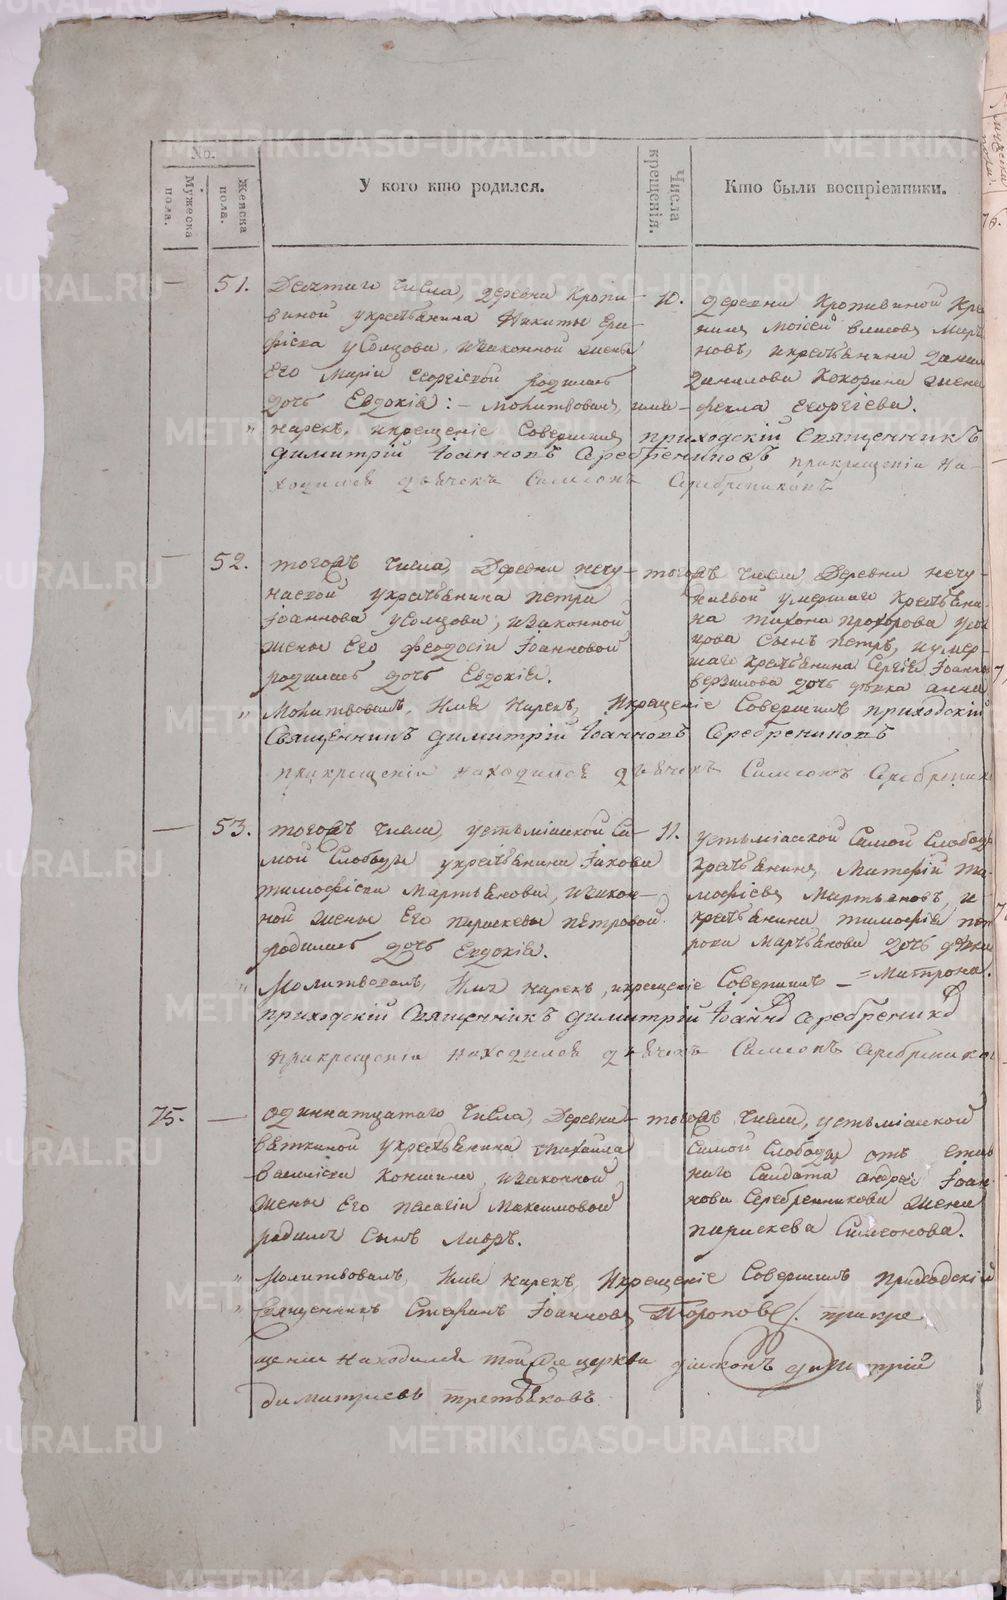 No.
Мужеска пола.
Женска пола.
У кого кто родился.
Числа крещенія.
Кто были воспріемники.
51. Десятаго числа, деревни Кропи-
виной у крестьянина Никиты
Усолцова, и законной жены
его Маріи Георгіевой родилась
дочь Евдокія: – Молитвовалъ, имя
нарекъ, и крещеніе совершилъ приходскій священникъ
Димитрій Іоанновъ Серебрениковъ при крещеніи на-
ходился дьячекъ Симеонъ Серебрениковъ
10. деревни Кропивиной
Моисей
новъ, и крестьянина
Данилова Кокорина жена
Фекла Георгіева.
52. тогожъ числа, деревни Печу-
наевой у крестьянина Петра
Іоаннова Усолцова, и законной
жены его Феодосіи Іоанновой
родилась дочь Евдокія.
Молитвовалъ, имя нарекъ, и крещеніе совершилъ приходскій
священникъ Димитрій Іоанновъ Серебрениковъ
при крещеніи находился дьячекъ Симеонъ
тогожъ числа деревни
умершаго крестьяни-
на Тихона Прохорова
сынъ Петръ, и умер-
шаго крестьянина Сергія
дочь дѣвка Анна
53. тогожъ числа, Устьміаской са-
мой слободы у крестьянина Іакова
Тимофіева Мартьянова, и закон-
ной жены его Параскевы Петровой
родилась дочь Евдокія.
Молитвовалъ, имя нарекъ, и крещеніе совершилъ
приходскій священникъ Димитрій Іоанновъ
при крещеніи находился дьячекъ Симеонъ
11. Устьміаской самой слободы
крестьянинъ
Мартьяновъ, и
крестьянина Тимофія
дочь дѣвка
Матрона.
75. Одиннатцатаго числа, деревни
Вяткиной у крестьянина Михаила
Коншина, и законной
жены его Пелагіи Максимовой
родился сынъ Лавръ.
Молитвовалъ, имя нарекъ, и крещеніе совершилъ приходскій
священникъ Стефанъ Іоанновъ Тороповъ. при кре
щеніи находился той же церкви діаконъ Димитрій
Димитріевъ Третьяковъ
тогожъ числа, Устьміаской
самой слободы
Солдата Андрея
нова Серебренникова жена
Параскева Симеонова.
METRIKI.GASO-URAL.RU